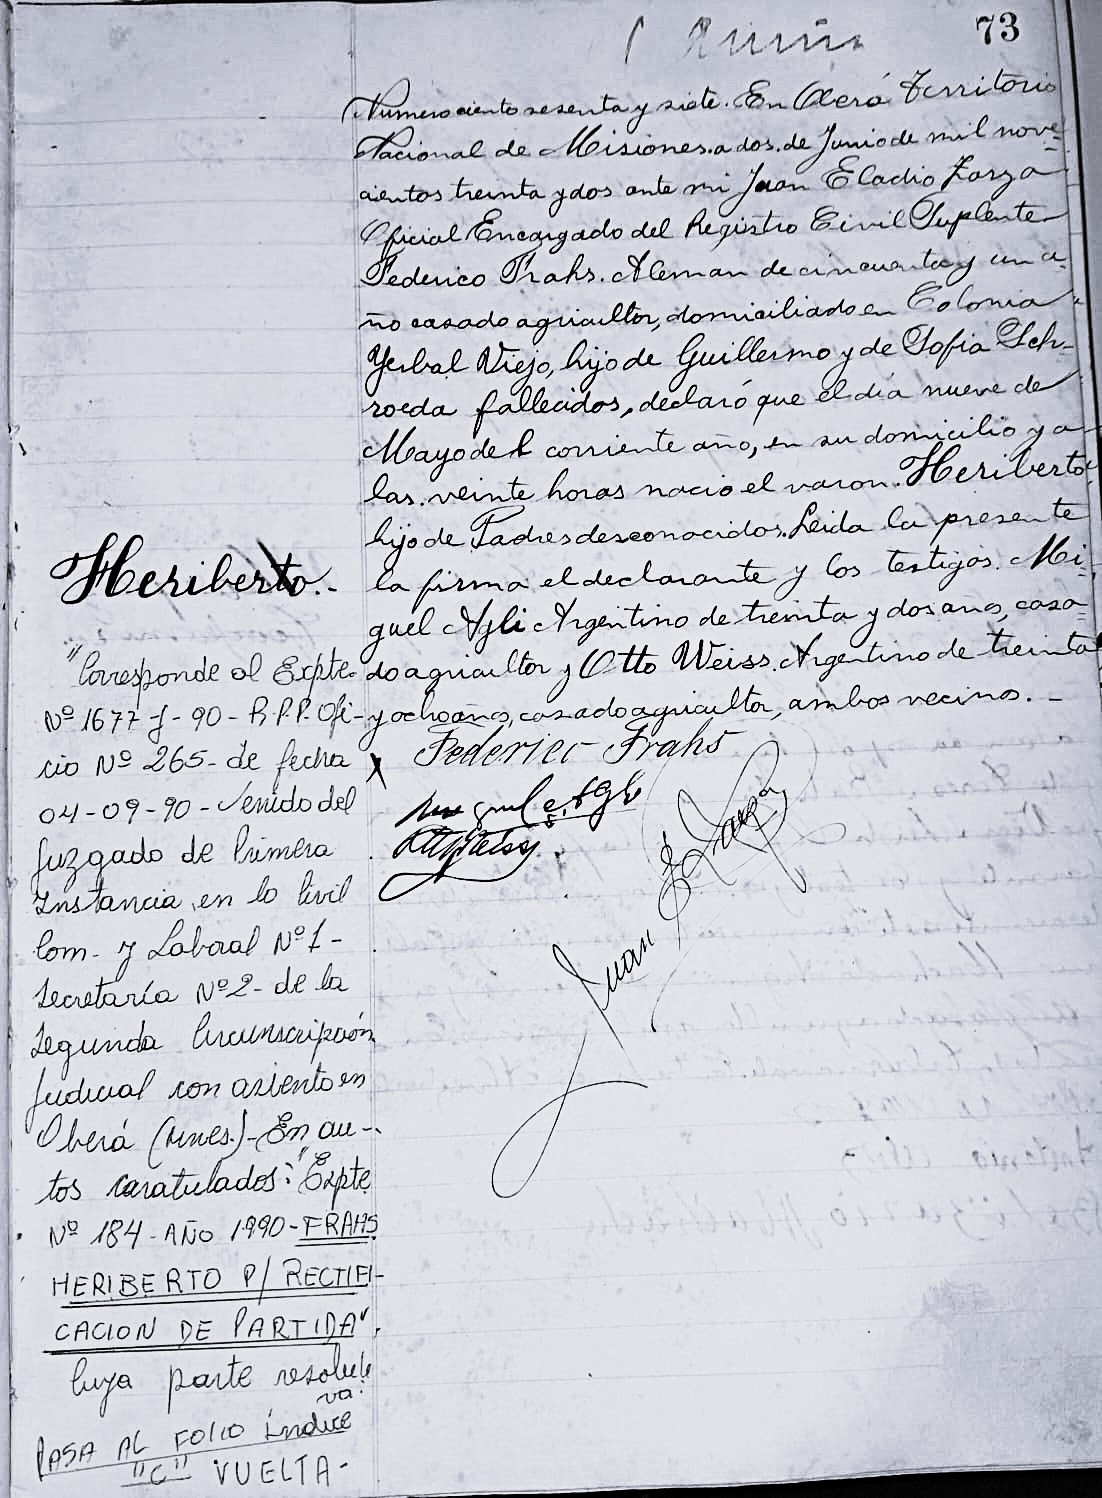 73
Numero ciento sesenta y siete. En Oberá Territorio
Nacional de Misiones a dos de Junio de mil nove-
cientos treinta y dos ante mi Juan Eladio Zarza
Oficial Encargado del Registro Civil Suplente
Federico Frahs. Aleman de cincuenta y un a-
ño casado agricultor, domiciliado en Colonia
Yerbal Viejo, hijo de Guillermo y de Sofia Sch-
roeda fallecidos, declaró que el día nueve de
Mayo del corriente año, en su domicilio y a
las veinte horas nacio el varon. Heriberto
hijo de Padres desconocidos. Leida la presente
la firma el declarante y los testigos. Mi-
guel Agli Argentino de treinta y dos ano, casa-
do agricultor y Otto Weiss. Argentino de treinta
y ocho años, casado agricultor, ambos vecinos. -
Federico Frahs
Juan E. Zarza
Heriberto.-
"Corresponde al Expte.
Nº 1677-J-90-R.P.P. Ofi-
cio Nº 265- de fecha
04-09-90- Venido del
Juzgado de Primera
Instancia en lo Civil
Com. y Laboral Nº 1-
Secretaría Nº 2- de la
Segunda Circunscripción
Judicial con asiento en
Oberá (Mnes.)- En au-
tos caratulados: "Expte
Nº 184- AÑO 1990- FRAHS
HERIBERTO P/ RECTIFI-
CACION DE PARTIDA".
Cuya parte resoluti-
va:
PASA AL FOLIO índice
"C" VUELTA-